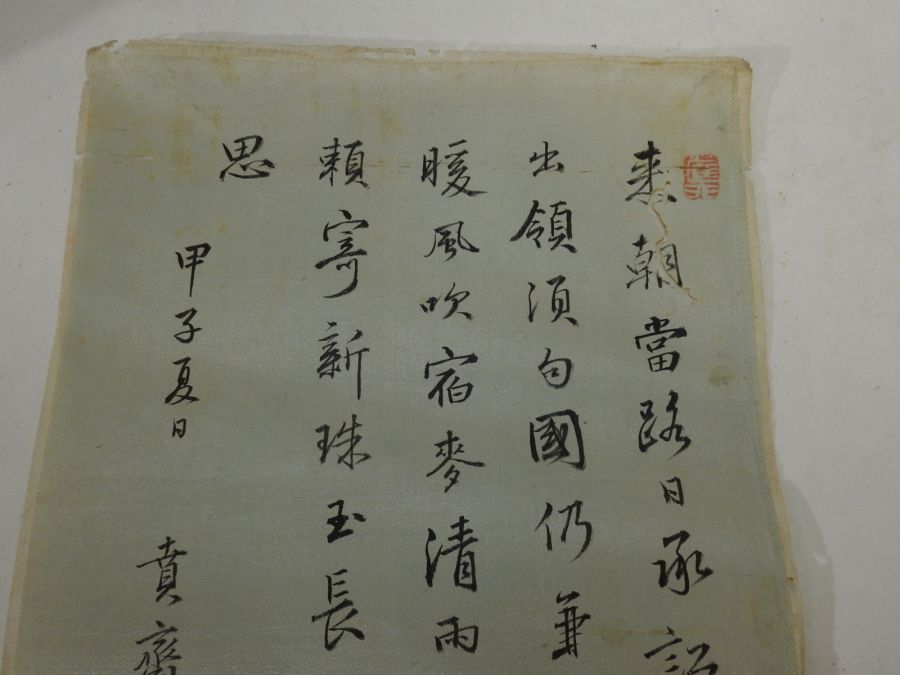 来朝當路日承詔
出領須句國仍兼
暖風吹宿麥清雨
頼寄新珠玉長
思
甲子夏日
賁齋